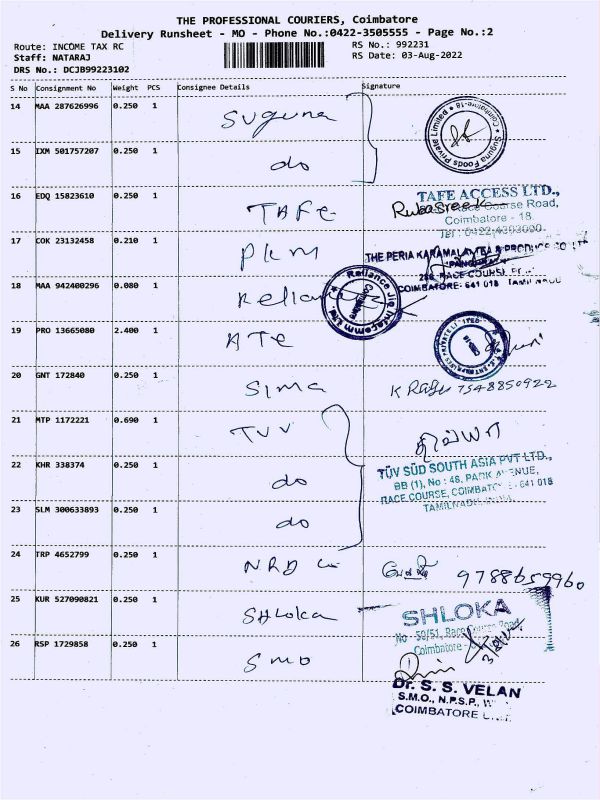 THE PROFESSIONAL COURIERS, Coimbatore
Delivery Runsheet - MO - Phone No.:0422-3505555 - Page No.:2
Route: INCOME TAX RC
RS No.: 992231
Staff: NATARAJ
RS Date: 03-Aug-2022
DRS No.: DCJB99223102
S No Consignment No Weight PCS Consignee Details Signature
14 MAA 287626996 0.250 1 Suguna
Suguna Foods Private Limited
15 IXM 501757207 0.250 1 do
16 EDQ 15823610 0.250 1 TAFE
TAFE ACCESS LTD.,
Course Road,
Coimbatore - 18.
Tel : 0422-4393000
17 COK 23132458 0.210 1 PKM
THE PERIA KARAMALAI TEA & PRODUCE CO LTD
RACE COURSE
COIMBATORE- 641 018
18 MAA 942400296 0.080 1 Reliance
Reliance Jio Infocomm Ltd.
Coimbatore
19 PRO 13665080 2.400 1 ATE
20 GNT 172840 0.250 1 Sima
K Ragu 7548850922
21 MTP 1172221 0.690 1 TUV
திவ்யா
TÜV SÜD SOUTH ASIA PVT LTD.,
BB (1), No : 46, PARK AVENUE,
RACE COURSE, COIMBATORE - 641 018
TAMILNADU, INDIA.
22 KHR 338374 0.250 1 do
23 SLM 300633893 0.250 1 do
24 TRP 4652799 0.250 1 NRD
9788659960
25 KUR 527090821 0.250 1 SHLoka
SHLOKA
No - 50/51, Race Course Road,
Coimbatore -
26 RSP 1729858 0.250 1 SMO
Dr. S. S. VELAN
S.M.O., N.P.S.P.,
COIMBATORE